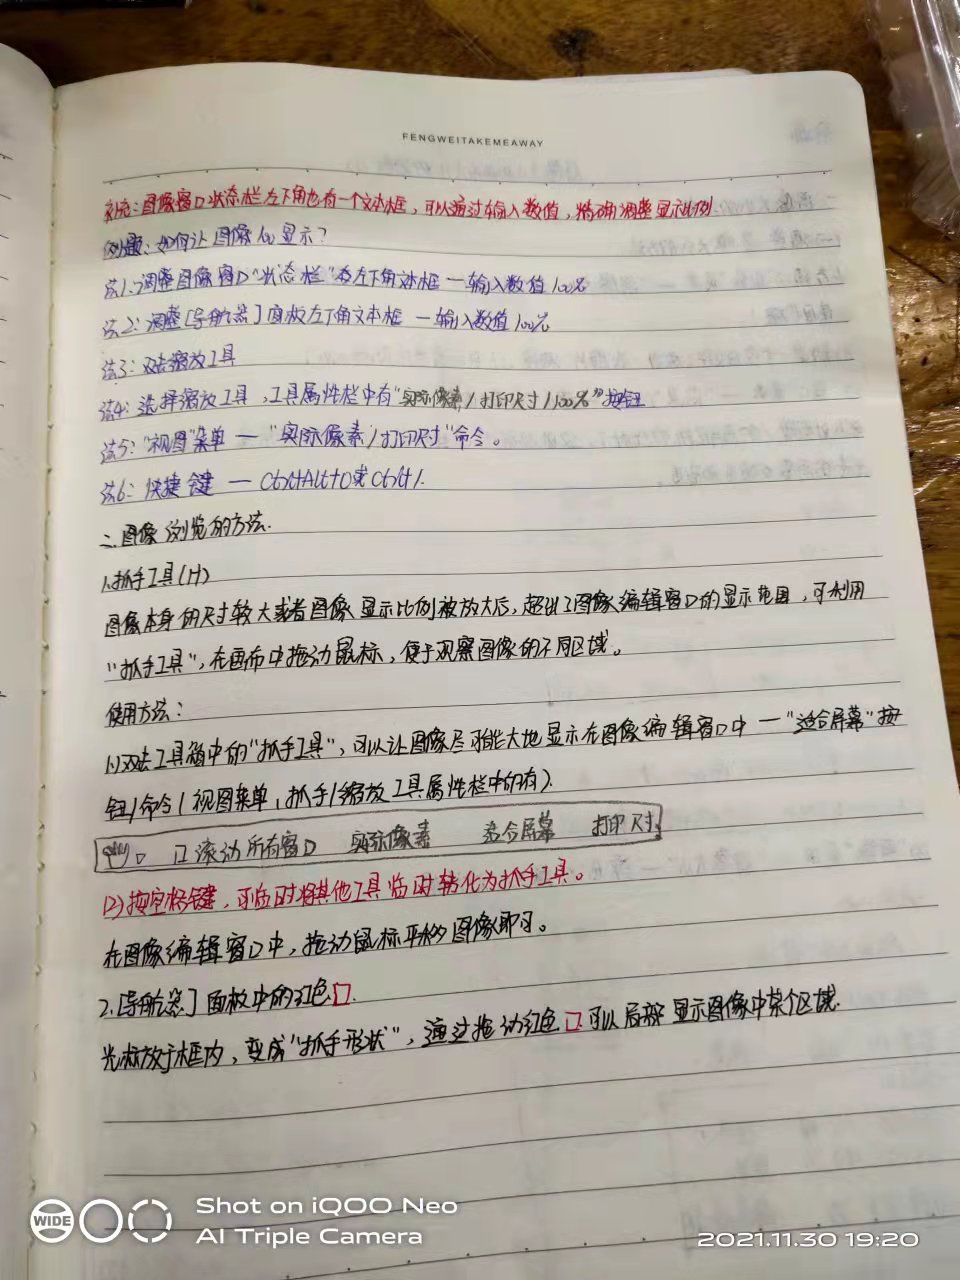 FENGWEITAKEMEAWAY
补充:图像窗口状态栏左下角也有一个文本框,可以通过输入数值,精确调整显示比例
例题:如何让图像100显示?
法1:调整图像窗口"状态栏"左下角文本框 — 输入数值100%
法2:调整[导航器]面板左下角文本框 — 输入数值100%
法3:双击缩放工具
法4:选择缩放工具,工具属性栏中有"实际像素/打印尺寸/100%"按钮
法5:"视图"菜单 — "实际像素/打印尺寸"命令。
法6:快捷键 — Ctrl+Alt+0或Ctrl+1.
二、图像浏览的方法.
1.抓手工具(H)
图像本身的尺寸较大或者图像显示比例被放大后,超出了图像编辑窗口的显示范围,可利用
"抓手工具",在画布中拖动鼠标,便于观察图像的不同区域。
使用方法:
(1)双击工具箱中的"抓手工具",可以让图像尽可能大地显示在图像编辑窗口中 — "适合屏幕"按
钮/命令(视图菜单,抓手/缩放工具属性栏中的有).
口滚动所有窗口 实际像素 适合屏幕 打印尺寸
(2)按空格键,可临时将其他工具临时转化为抓手工具。
在图像编辑窗口中,拖动鼠标平移图像即可。
2.[导航器]面板中的红色口.
光标放于框内,变成"抓手形状",通过拖动红色口可以局部显示图像中某个区域.
WIDE
Shot on iQOO Neo
AI Triple Camera
2021.11.30 19:20